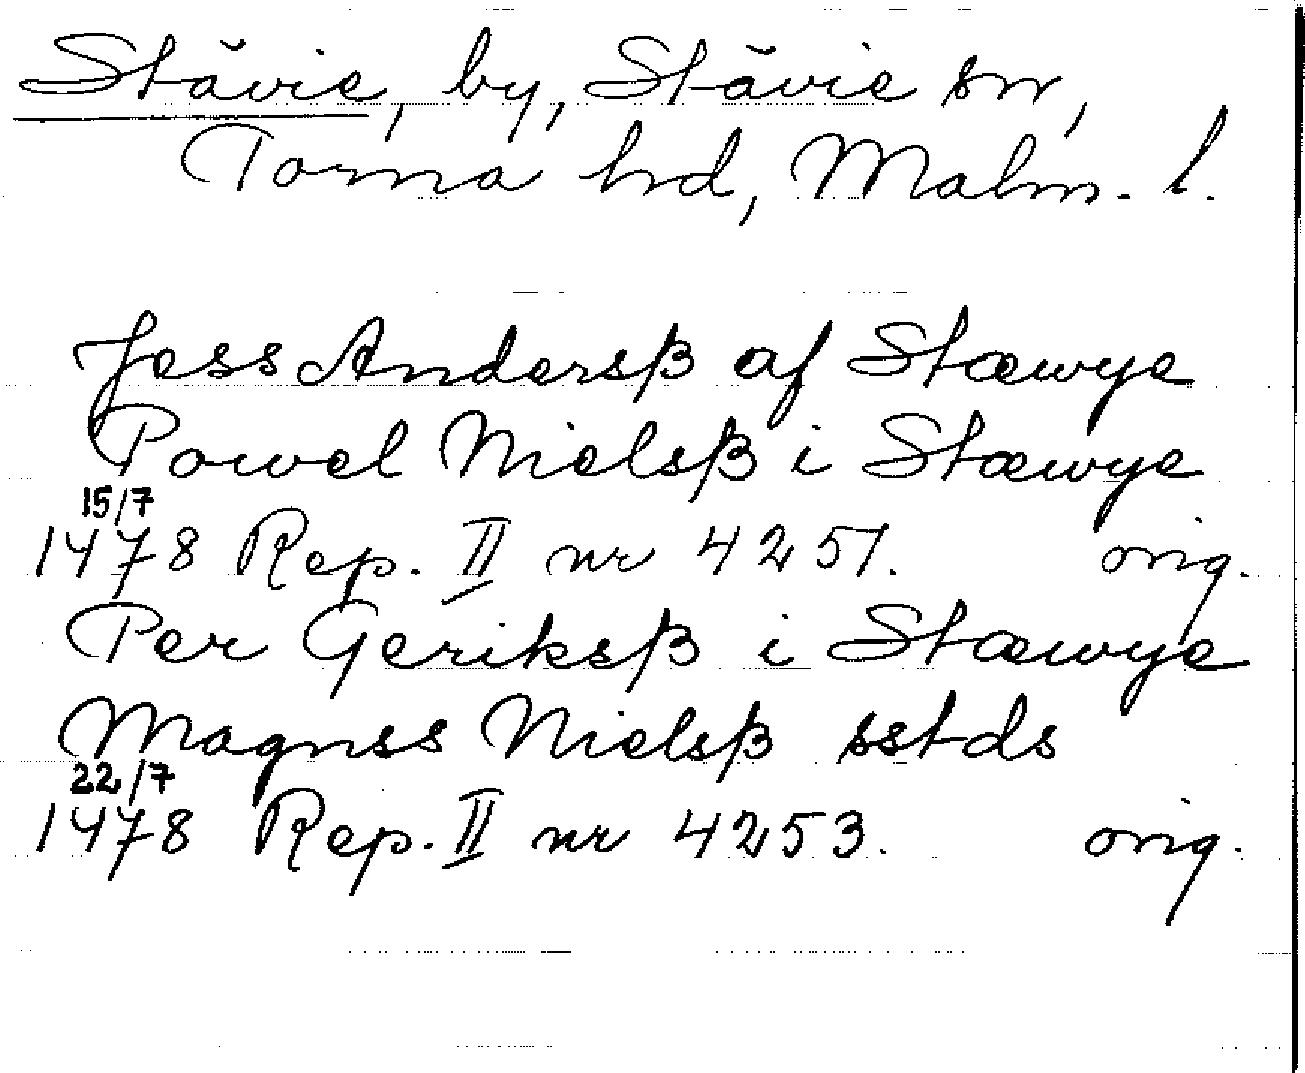 Stävie, by, Stävie sn,
Torna hd, Malm. l.
Jess Andersß af Stæwye
Powel Nielsß i Stæwye
15/7
1478 Rep. II nr 4251. orig.
Per Geriksß i Stæwye
Magnss Nielsß sstds
22/7
1478 Rep. II nr 4253. orig.